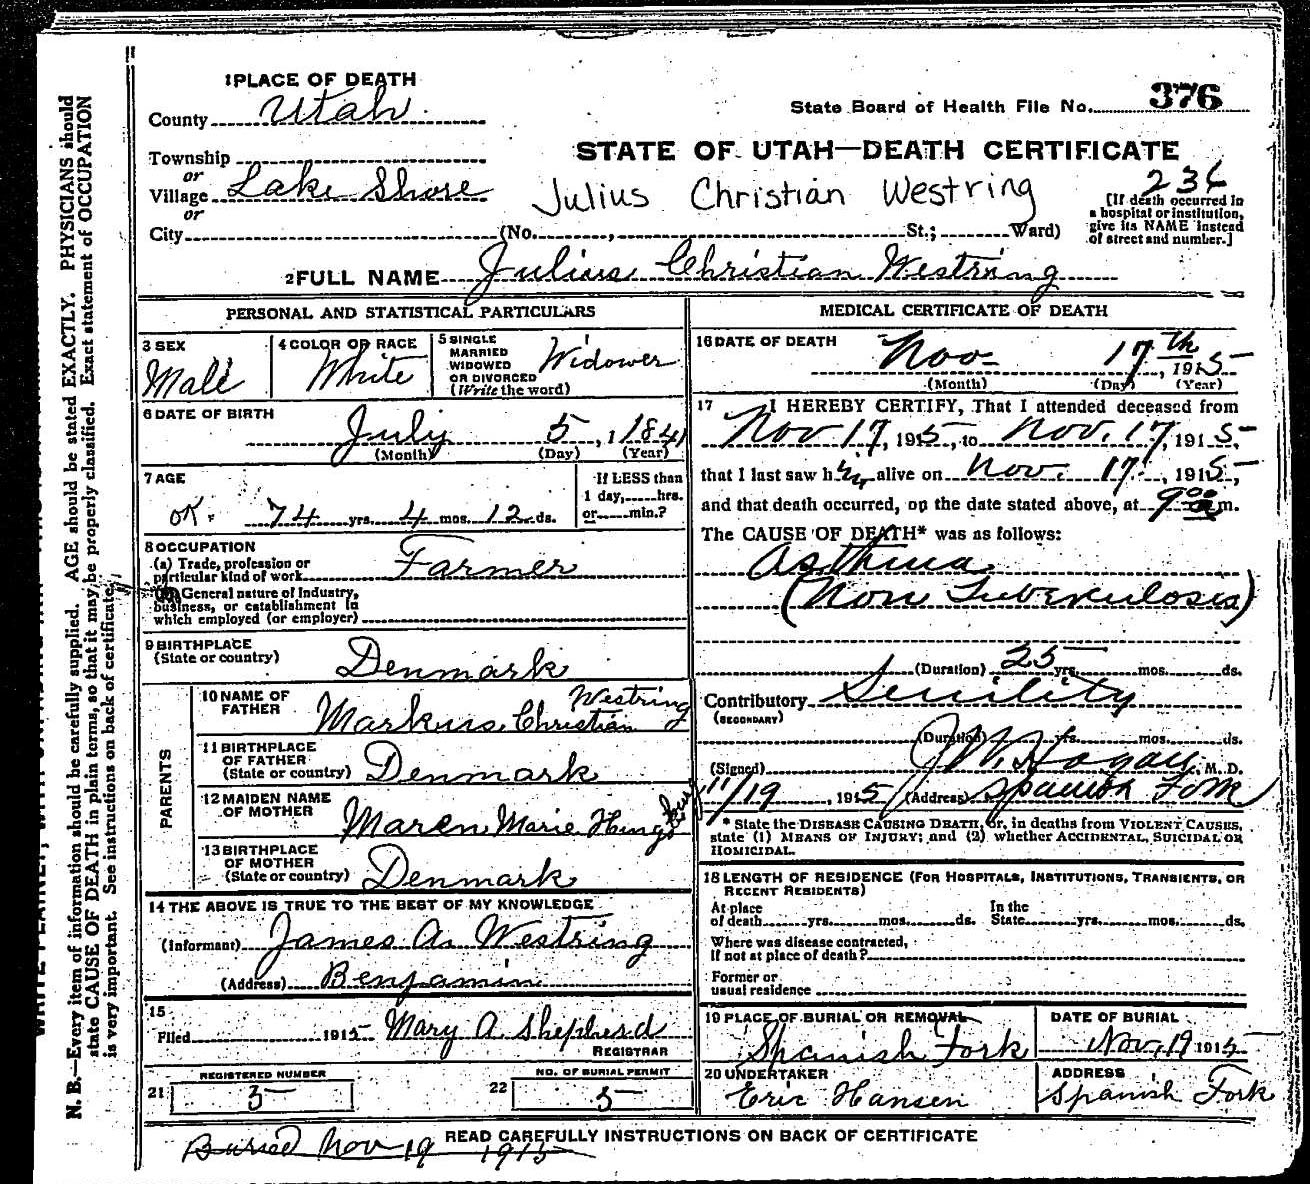 1 PLACE OF DEATH
County Utah
State Board of Health File No. 376
STATE OF UTAH—DEATH CERTIFICATE
Township
or
Village Lake Shore
or
City (No. , St.; Ward)
Julius Christian Westring
236
[If death occurred in
a hospital or institution,
give its NAME instead
of street and number.]
2 FULL NAME Julius Christian Westring
PERSONAL AND STATISTICAL PARTICULARS
3 SEX
Male
4 COLOR OR RACE
White
5 SINGLE
MARRIED
WIDOWED
OR DIVORCED
(Write the word)
Widower
6 DATE OF BIRTH
July 5, 1841
(Month) (Day) (Year)
7 AGE
OK. 74 yrs. 4 mos. 12 ds.
If LESS than
1 day, hrs.
or min.?
8 OCCUPATION
(a) Trade, profession or
particular kind of work Farmer
General nature of Industry,
business, or establishment in
which employed (or employer)
9 BIRTHPLACE
(State or country) Denmark
PARENTS
10 NAME OF
FATHER Markus Christian Westring
11 BIRTHPLACE
OF FATHER
(State or country) Denmark
12 MAIDEN NAME
OF MOTHER Maren Marie
13 BIRTHPLACE
OF MOTHER
(State or country) Denmark
14 THE ABOVE IS TRUE TO THE BEST OF MY KNOWLEDGE
(Informant) James A. Westring
(Address) Benjamin
15
Filed 1915 Mary A Shepherd
REGISTRAR
REGISTERED NUMBER
21 3
NO. OF BURIAL PERMIT
22 5
MEDICAL CERTIFICATE OF DEATH
16 DATE OF DEATH
Nov 17th, 1915
(Month) (Day) (Year)
17 I HEREBY CERTIFY, That I attended deceased from
Nov 17, 1915, to Nov. 17, 1915,
that I last saw him alive on Nov. 17, 1915,
and that death occurred, on the date stated above, at 9 00 m.
The CAUSE OF DEATH* was as follows:
Asthma
(Non Tuberculosis)
(Duration) 25 yrs. mos. ds.
Contributory Senility
(SECONDARY)
(Duration) yrs. mos. ds.
(Signed) J.W. Hagan, M. D.
11/19, 1915 (Address) Spanish Fork
* State the DISEASE CAUSING DEATH, or, in deaths from VIOLENT CAUSES,
state (1) MEANS OF INJURY; and (2) whether ACCIDENTAL, SUICIDAL OR
HOMICIDAL.
18 LENGTH OF RESIDENCE (FOR HOSPITALS, INSTITUTIONS, TRANSIENTS, OR
RECENT RESIDENTS)
At place
of death yrs. mos. ds.
In the
State yrs. mos. ds.
Where was disease contracted,
if not at place of death?
Former or
usual residence
19 PLACE OF BURIAL OR REMOVAL
Spanish Fork
DATE OF BURIAL
Nov. 19 1915
20 UNDERTAKER
Eric Hansen
ADDRESS
Spanish Fork
READ CAREFULLY INSTRUCTIONS ON BACK OF CERTIFICATE
Buried Nov 19 1915
N. B.—Every item of information should be carefully supplied. AGE should be stated EXACTLY. PHYSICIANS should
state CAUSE OF DEATH in plain terms, so that it may be properly classified. Exact statement of OCCUPATION
is very important. See instructions on back of certificate.